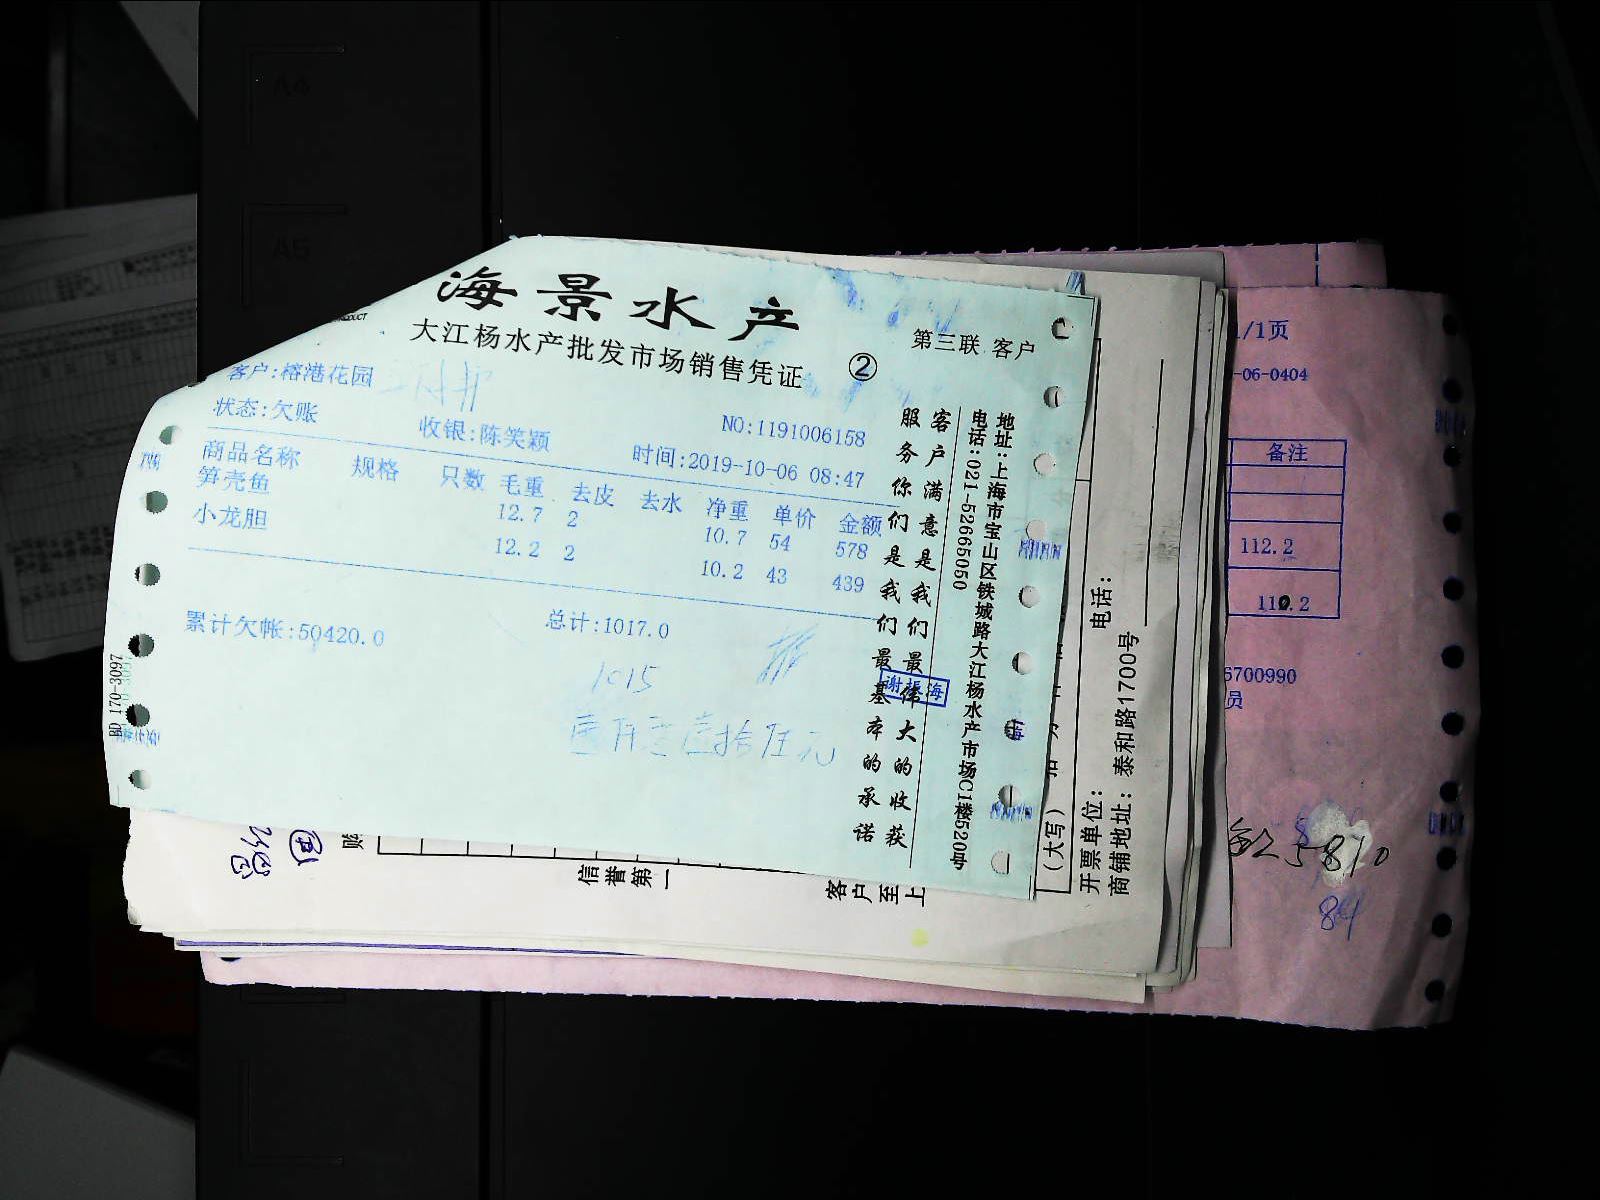 海景水产
大江杨水产批发市场销售凭证
②
第三联 客户
客户:榕港花园
状态:欠账
收银:陈笑颖
NO:1191006158
时间:2019-10-06 08:47
商品名称 规格 只数 毛重 去皮 去水 净重 单价 金额
笋壳鱼 12.7 2 10.7 54 578
小龙胆 12.2 2 10.2 43 439
累计欠帐:50420.0
总计:1017.0
1015
客户满意是我们最伟大的收获
服务你们是我们最基本的承诺
地址:上海市宝山区铁城路大江杨水产市场C1楼520号
电话:021-52665050
谢振海
BD 170-3097
信誉第一
客户至上
(大写)
开票单位:
电话:
商铺地址:泰和路1700号
1/1页
-06-0404
备注
112.2
110.2
6700990
员
5810
84